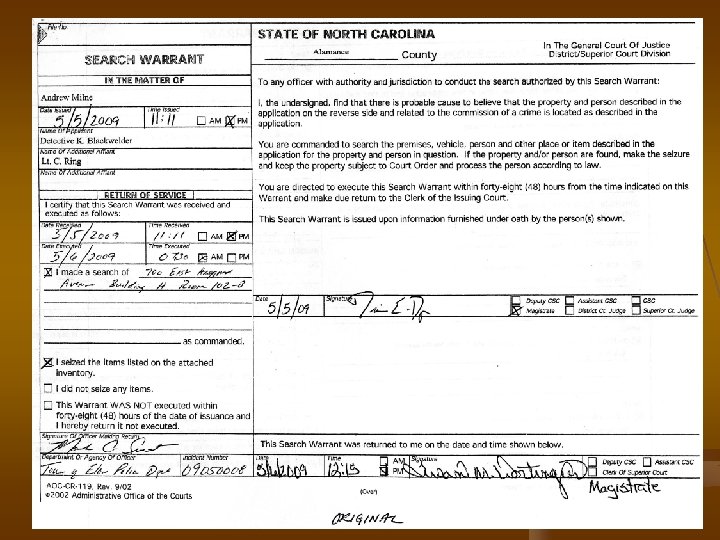 File No.
STATE OF NORTH CAROLINA
Alamance County
In The General Court Of Justice
District/Superior Court Division
SEARCH WARRANT
IN THE MATTER OF
Andrew Milne
Date Issued
5/5/2009
Time Issued
11:11 AM PM
Name Of Applicant
Detective K. Blackwelder
Name Of Additional Affiant
Lt. C. Ring
Name Of Additional Affiant
RETURN OF SERVICE
I certify that this Search Warrant was received and
executed as follows:
Date Received
5/5/2009
Time Received
11:11 AM PM
Date Executed
5/6/2009
Time Executed
0730 AM PM
I made a search of 700 East
Building H Room 102-B
as commanded.
I seized the items listed on the attached
inventory.
I did not seize any items.
This Warrant WAS NOT executed within
forty-eight (48) hours of the date of issuance and
I hereby return it not executed.
Signature Of Officer Making Return
Department Or Agency Of Officer
Town of Elon Police Dept
Incident Number
09050008
AOC-CR-119, Rev. 9/02
©2002 Administrative Office of the Courts
To any officer with authority and jurisdiction to conduct the search authorized by this Search Warrant:
I, the undersigned, find that there is probable cause to believe that the property and person described in the
application on the reverse side and related to the commission of a crime is located as described in the
application.
You are commanded to search the premises, vehicle, person and other place or item described in the
application for the property and person in question. If the property and/or person are found, make the seizure
and keep the property subject to Court Order and process the person according to law.
You are directed to execute this Search Warrant within forty-eight (48) hours from the time indicated on this
Warrant and make due return to the Clerk of the Issuing Court.
This Search Warrant is issued upon information furnished under oath by the person(s) shown.
Date
5/5/09
Signature
Deputy CSC Assistant CSC CSC
Magistrate District Ct. Judge Superior Ct. Judge
This Search Warrant was returned to me on the date and time shown below.
Date
5/6/2009
Time
12:15 AM PM
Signature
Deputy CSC Assistant CSC
Clerk Of Superior Court
Magistrate
(Over)
ORIGINAL